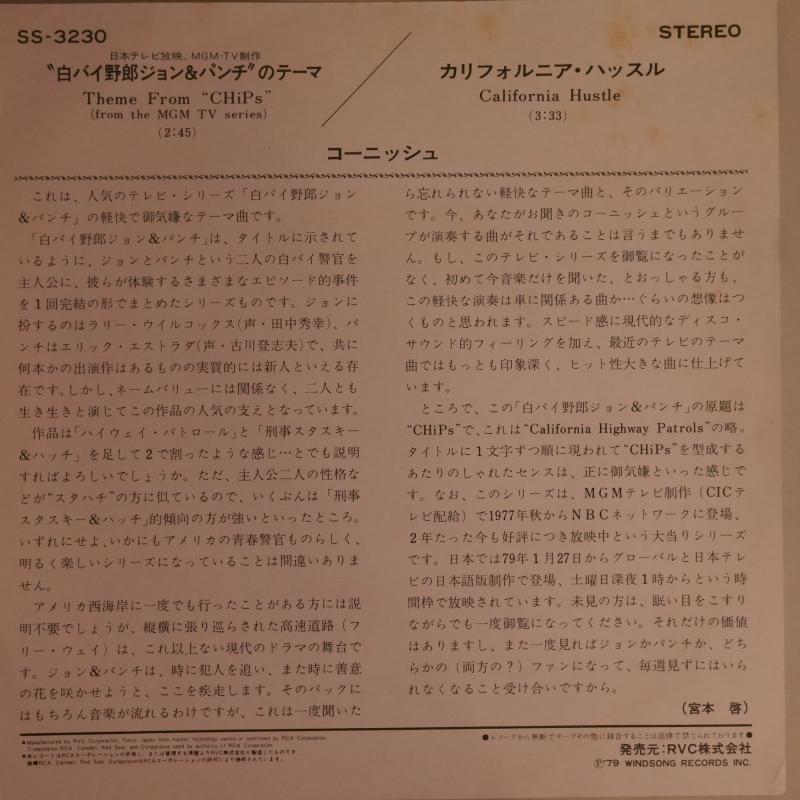 SS-3230
STEREO
日本テレビ放映、MGM-TV制作
“白バイ野郎ジョン&パンチ”のテーマ
Theme From “CHiPs”
(from the MGM TV series)
(2:45)
カリフォルニア・ハッスル
California Hustle
(3:33)
コーニッシュ
これは、人気のテレビ・シリーズ「白バイ野郎ジョン
&パンチ」の軽快で御気嫌なテーマ曲です。
「白バイ野郎ジョン&パンチ」は、タイトルに示されて
いるように、ジョンとパンチという二人の白バイ警官を
主人公に、彼らが体験するさまざまなエピソード的事件
を1回完結の形でまとめたシリーズものです。ジョンに
扮するのはラリー・ウイルコックス(声・田中秀幸)、パ
ンチはエリック・エストラダ(声・古川登志夫)で、共に
何本かの出演作はあるものの実質的には新人といえる存
在です。しかし、ネームバリューには関係なく、二人とも
生き生きと演じてこの作品の人気の支えとなっています。
作品は「ハイウェイ・パトロール」と「刑事スタスキー
&ハッチ」を足して2で割ったような感じ…とでも説明
すればよろしいでしょうか。ただ、主人公二人の性格な
どが“スタハチ”の方に似ているので、いくぶんは「刑事
スタスキー&ハッチ」的傾向の方が強いといったところ。
いずれにせよ、いかにもアメリカの青春警官ものらしく、
明るく楽しいシリーズになっていることは間違いありま
せん。
アメリカ西海岸に一度でも行ったことがある方には説
明不要でしょうが、縦横に張り巡らされた高速道路(フ
リー・ウェイ)は、これ以上ない現代のドラマの舞台で
す。ジョン&パンチは、時に犯人を追い、また時に善意
の花を咲かせようと、ここを疾走します。そのバックに
はもちろん音楽が流れるわけですが、これは一度聞いた
ら忘れられない軽快なテーマ曲と、そのバリエーション
です。今、あなたがお聞きのコーニッシュというグルー
プが演奏する曲がそれであることは言うまでもありませ
ん。もし、このテレビ・シリーズを御覧になったことが
なく、初めて今音楽だけを聞いた、とおっしゃる方も、
この軽快な演奏は車に関係ある曲か…ぐらいの想像はつ
くものと思われます。スピード感に現代的なディスコ・
サウンド的フィーリングを加え、最近のテレビのテーマ
曲ではもっとも印象深く、ヒット性大きな曲に仕上げて
います。
ところで、この「白バイ野郎ジョン&パンチ」の原題は
“CHiPs”で、これは“California Highway Patrols”の略。
タイトルに1文字ずつ順に現われて“CHiPs”を型成する
あたりのしゃれたセンスは、正に御気嫌といった感じで
す。なお、このシリーズは、MGMテレビ制作(CICテ
レビ配給)で1977年秋からNBCネットワークに登場、
2年たった今も好評につき放映中という大当りシリーズ
です。日本では79年1月27日からグローバルと日本テレ
ビの日本語版制作で登場、土曜日深夜1時からという時
間枠で放映されています。未見の方は、眠い目をこすり
ながらでも一度御覧になってください。それだけの価値
はありますし、また一度見ればジョンかパンチか、どち
らかの(両方の?)ファンになって、毎週見ずにはいら
れなくなること受け合いですから。
(宮本 啓)
●Manufactured by RVC Corporation, Tokyo, Japan from master recordings owned or controlled by RCA Corporation.
Trademarks RCA, Camden, Red Seal, and Dynagroove used by authority of RCA Corporation
●本レコードはRCAコーポレーションが所有し、または管理する原盤よりRVC株式会社が製造したものです。
商標RCA, Camden, Red Seal, DynagrooveはRCAコーポレーションの許可により使用されています。
●レコードから無断でテープその他に録音することは法律で禁じられております●
発売元:RVC株式会社
Ⓟ'79 WINDSONG RECORDS INC.